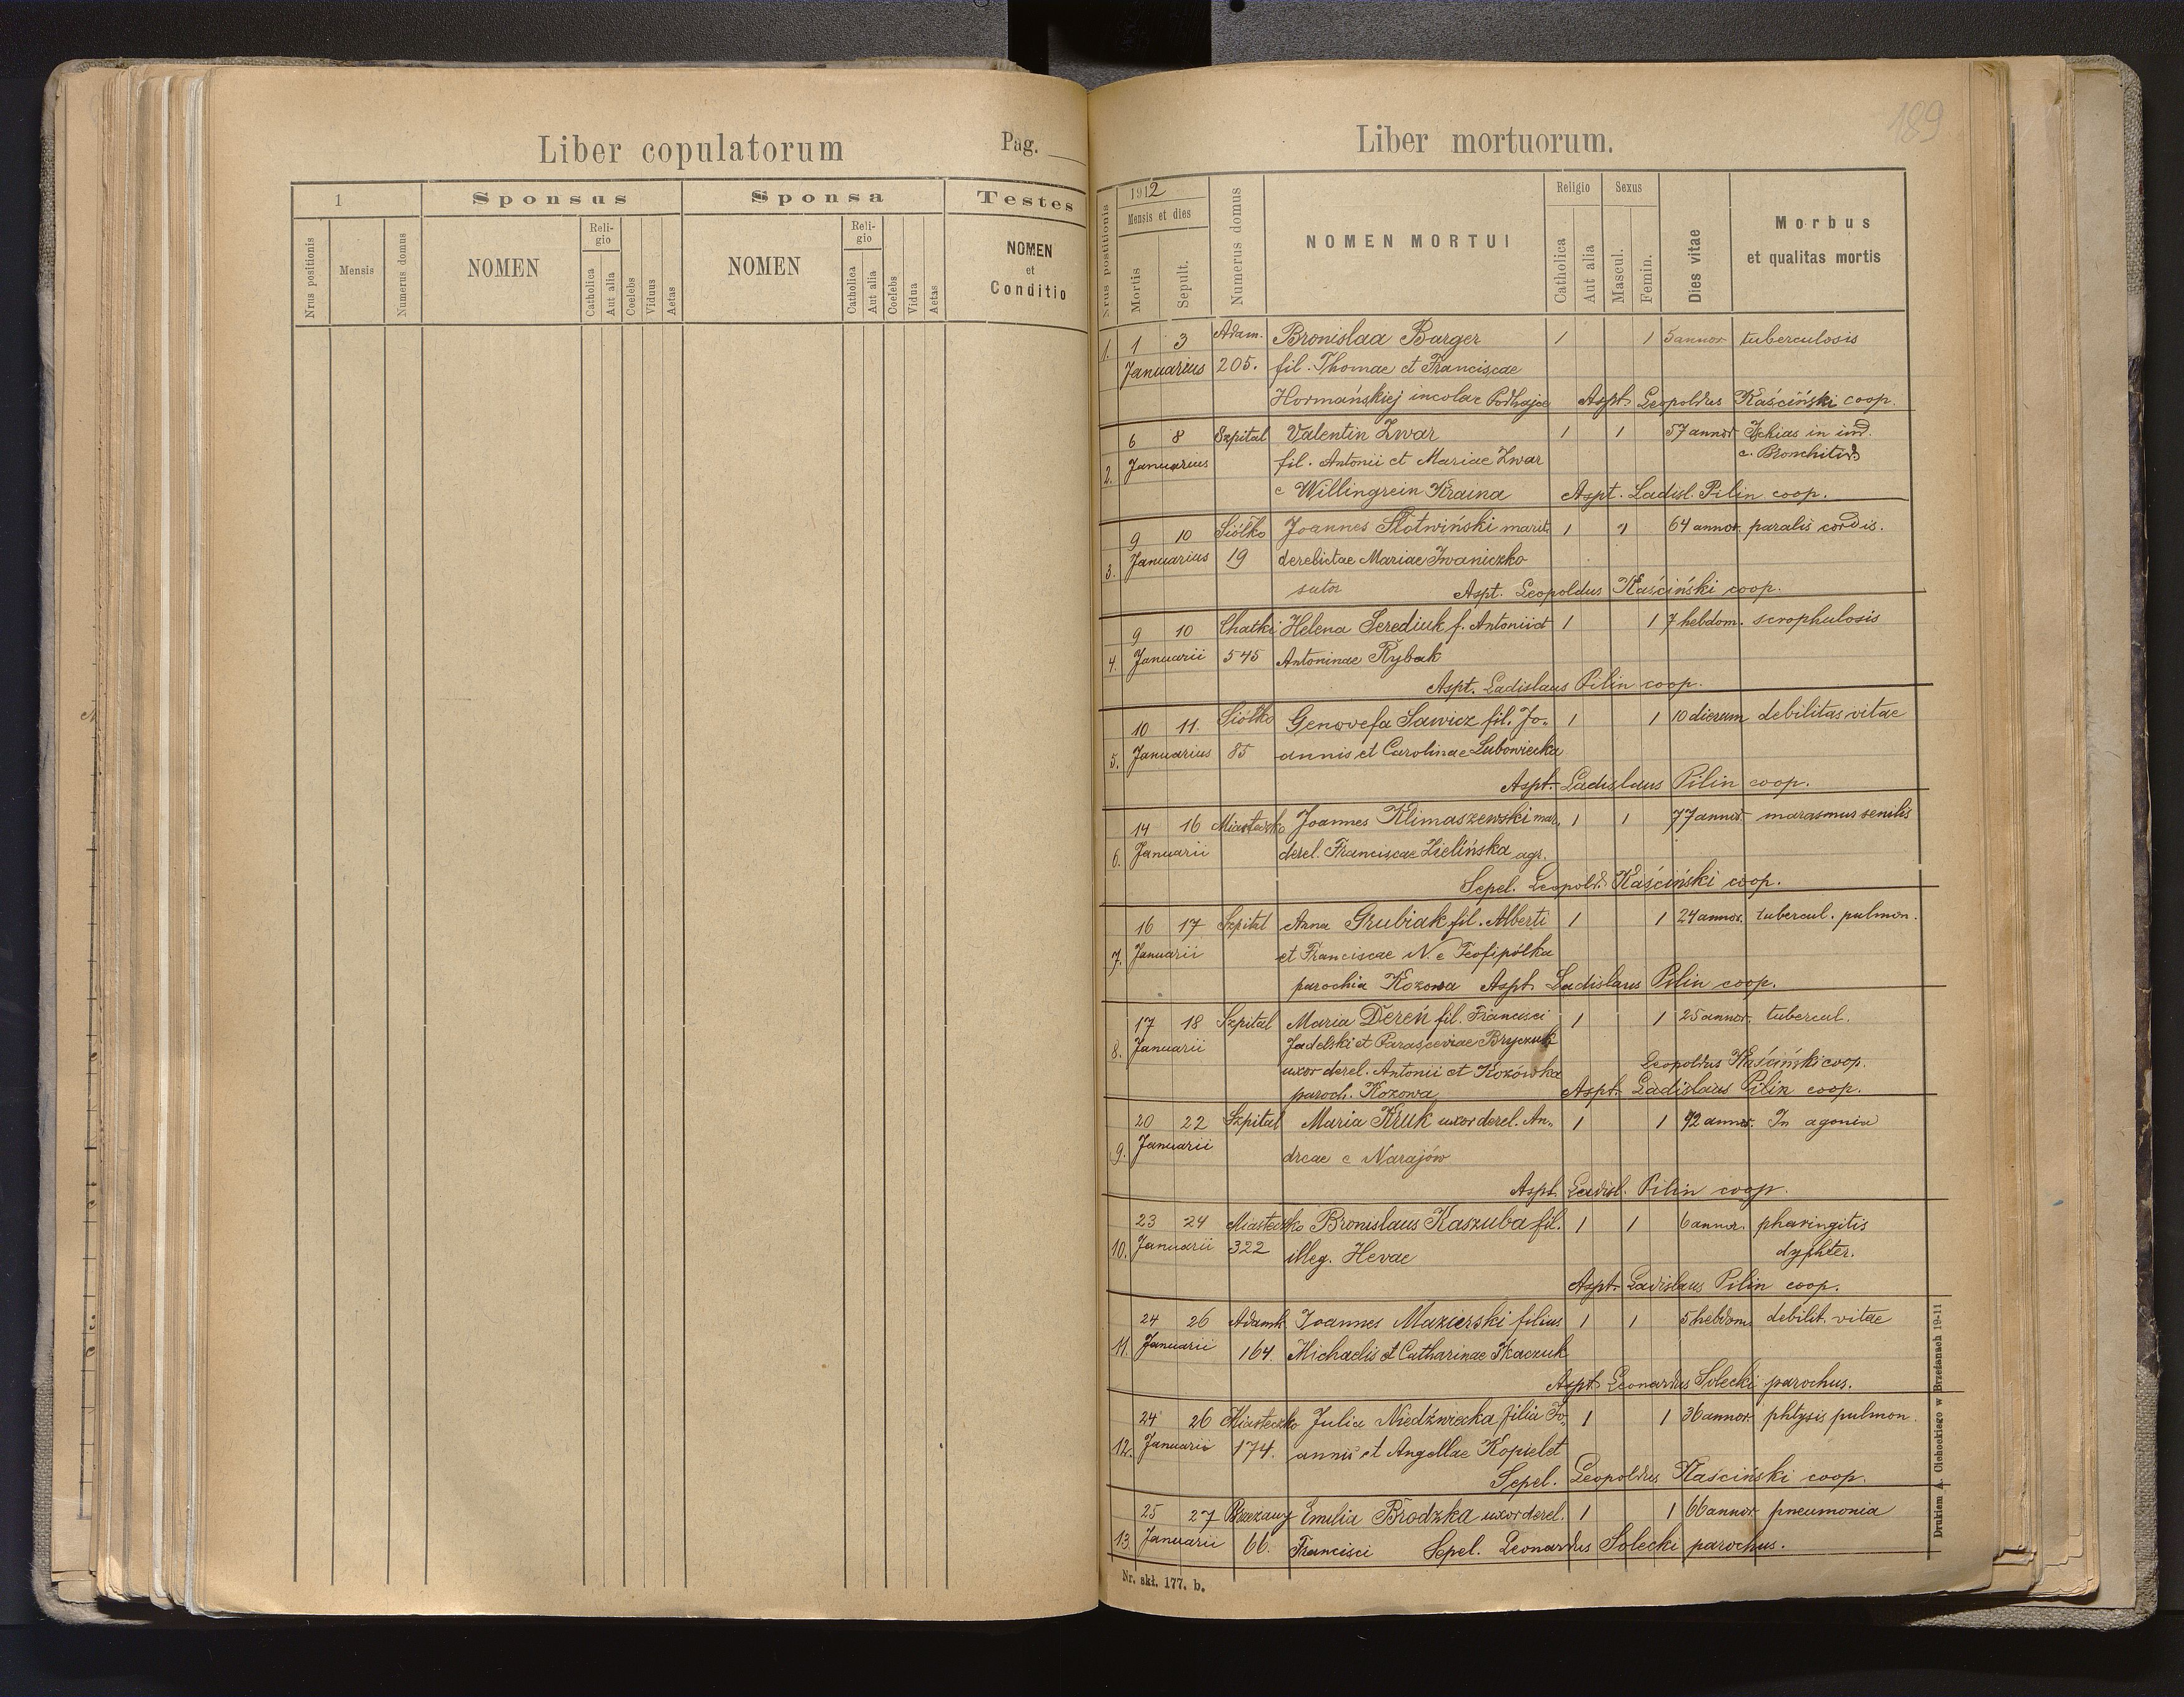 Liber copulatorum Pag.
1 Sponsus Sponsa Testes
Nrus positionis Mensis Numerus domus NOMEN Reli-gio Catholica Aut alia Coelebs Viduus Aetas NOMEN Reli-gio Catholica Aut alia Coelebs Vidua Aetas NOMEN et Conditio
189
Liber mortuorum.
Nrus postitionis 1912 Mensis et dies Mortis Sepult. Numerus domus NOMEN MORTUI Religio Catholica Aut alia Sexus Mascul. Femin. Dies vitae Morbus et qualitas mortis
1. 1 3 Adam. Bronislaa Barger 1 1 5 annor tuberculosis
Januarius 205. fil. Thomae et Franciscae
Hormańskiej incolae Podhajce Aspt. Leopoldus Kaściński coop.
6 8 Szpital Valentin Zwar 1 1 57 annor Ischias in ind.
2. Januarius fil. Antonii et Mariae Zwar c. Bronchitid.
e Willingrein Kraina Aspt. Ladisl. Pilin coop.
9 10 Siółko Joannes Słotwiński marit. 1 1 64 annor. paralis cordis.
3. Januarius 19 derelictae Mariae Iwaniczko
sutor Aspt. Leopoldus Kaściński coop.
9 10 Chatki Helena Serediuk f. Antonii et 1 1 7 hebdom. scrophulosis
4. Januarii 545 Antoninae Rybak
Aspt. Ladislaus Pilin coop.
10 11. Siółko Genovefa Sawicz fil. Jo- 1 1 10 dierum debilitas vitae
5. Januarius 85 annis et Carolinae Lubowiecka
Aspt. Ladislaus Pilin coop.
14 16 Miasteczko Joannes Klimaszewski mar. 1 1 77 annor. marasmus senilis
6. Januarii derel. Franciscae Zielińska agr.
Sepel. Leopold. Kaściński coop.
16 17 Szpital Anna Grubiak fil. Alberti 1 1 24 annor. tubercul. pulmon.
7. Januarii et Franciscae N. e Teofipólka
parochia Kozowa Aspt. Ladislaus Pilin coop.
17 18 Szpital Maria Dereń fil. Francisci 1 1 25 annor. tubercul.
8. Januarii Jadelski et Parasceviae Bryczuk
uxor derel. Antonii et Kozówka Leopoldus Kaściński coop.
paroch. Kozowa Aspt. Ladislaus Pilin coop.
20 22 Szpital Maria Kruk uxor derel. An- 1 1 42 annor. In agonia
9. Januarii dreae e Narajów
Aspt. Ladisl. Pilin coop.
23 24 Miasteczko Bronislaus Kaszuba fil. 1 1 6 annor. pharingitis
10. Januarii 322 illeg. Hevae dyphter.
Aspt. Ladislaus Pilin coop.
24 26 Adamk Joannes Mazierski filius 1 1 5 hebdom. debilit. vitae
11. Januarii 164. Michaelis et Catharinae Tkaczuk
Aspt. Leonardus Solecki parochus.
24 26 Miasteczko Julia Niedźwiecka filia Jo- 1 1 36 annor. phtysis pulmon.
12. Januarii 174. annis et Angellae Kopielet
Sepel. Leopoldus Kaściński coop.
25 27 Brzeżany Emilia Brodzka uxor derel. 1 1 66 annor. pneumonia
13. Januarii 66. Francisci Sepel. Leonardus Solecki parochus.
Nr. skł. 177. b.
Drukiem A. Cichockiego w Brzeżanach 19-11